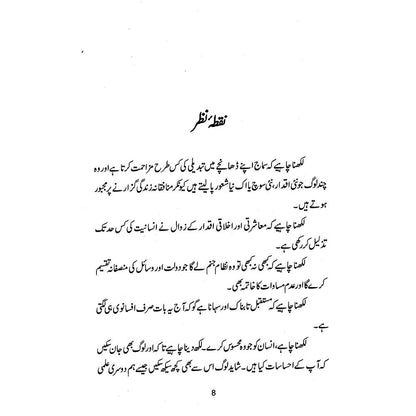 نقطۂ نظر
لکھنا چاہیے کہ سماج اپنے ڈھانچے میں تبدیلی کی کس طرح مزاحمت کرتا ہے اور وہ
چند لوگ جو نئی اقدار، نئی سوچ یا اک نیا شعور پا لیتے ہیں کیونکر منافقانہ زندگی گزارنے پر مجبور
ہوتے ہیں۔
لکھنا چاہیے کہ معاشرتی اور اخلاقی اقدار کے زوال نے انسانیت کی کس حد تک
تذلیل کر رکھی ہے۔
لکھنا چاہیے کہ کبھی نہ کبھی تو وہ نظام جنم لے گا جو دولت اور وسائل کی منصفانہ تقسیم
کرے گا اور عدم مساوات کا خاتمہ بھی۔
لکھنا چاہیے کہ مستقبل تابناک اور سہانا ہے گو کہ آج یہ بات صرف افسانوی ہی لگتی
ہے۔
لکھنا چاہیے، انسان کو جو وہ محسوس کرے۔ لکھ دینا چاہیے تاکہ اور لوگ بھی جان سکیں
کہ آپ کے احساسات کیا ہیں۔ شاید لوگ اس سے بھی کچھ سیکھ سکیں جیسے ہم دوسری علمی
8